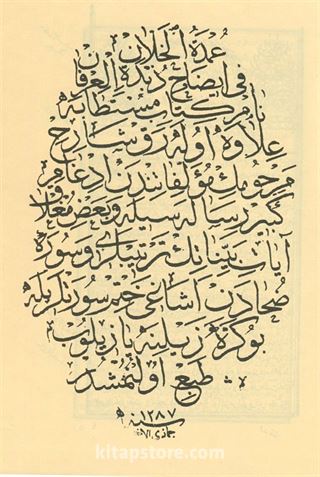 عمدة الخلان
في ايضاح زبدة العرفان
نام كتاب مستطابه
علاوه اوله رق شارح
مرحومك مؤلفاتندن ادغام
كبير رساله سيله وبعض مغلاق
آيات بيناتك ترتيبلرى وسورۀ
ضحادن اشاغى ختم سورلريله
بو كره زيلينه يازيلوب
طبع اولنمشدر
سنه ١٢٨٧
جمادى الاخر
kitapstore.com